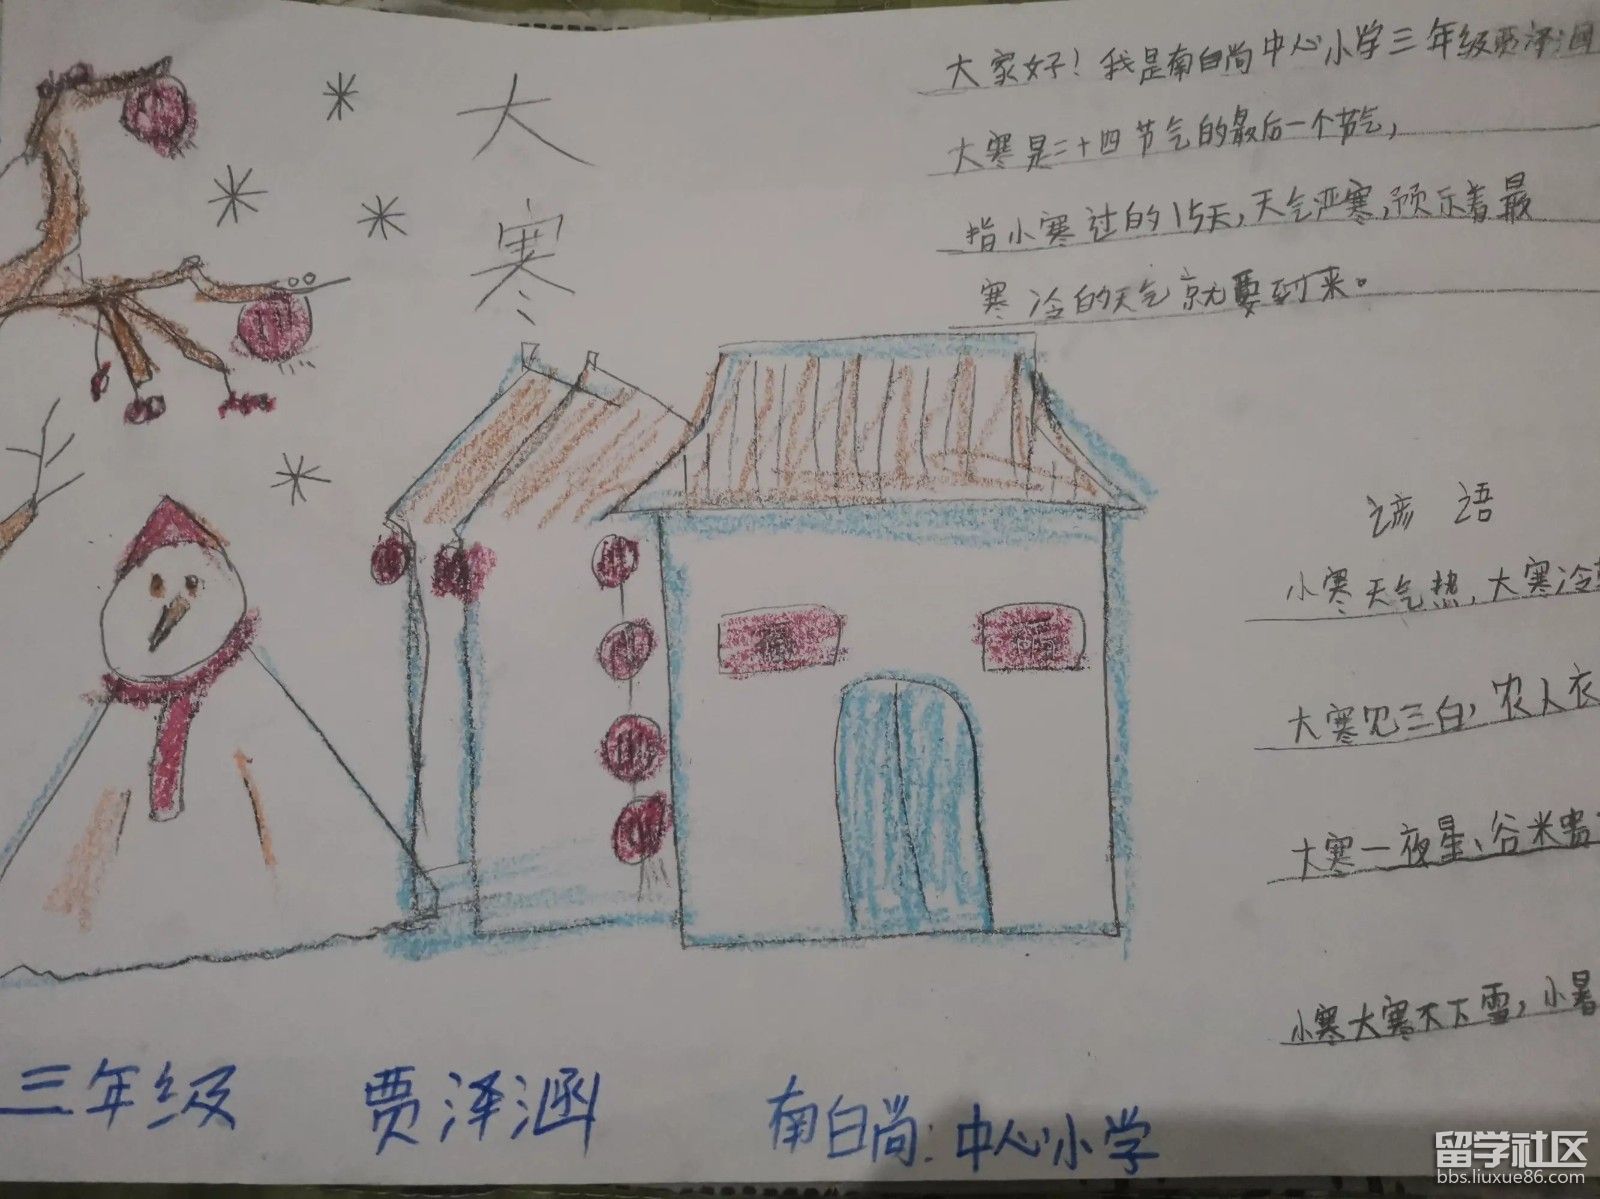 大寒
大家好!我是南白尚中心小学三年级贾泽涵
大寒是二十四节气的最后一个节气,
指小寒过的15天,天气严寒,预示着最
寒冷的天气就要到来。
谚语
小寒天气热,大寒冷
大寒见三白,农人衣
大寒一夜星、谷米贵
小寒大寒不下雪,小暑
三年级 贾泽涵 南白尚:中心小学
留学社区
bbs.liuxue86.com